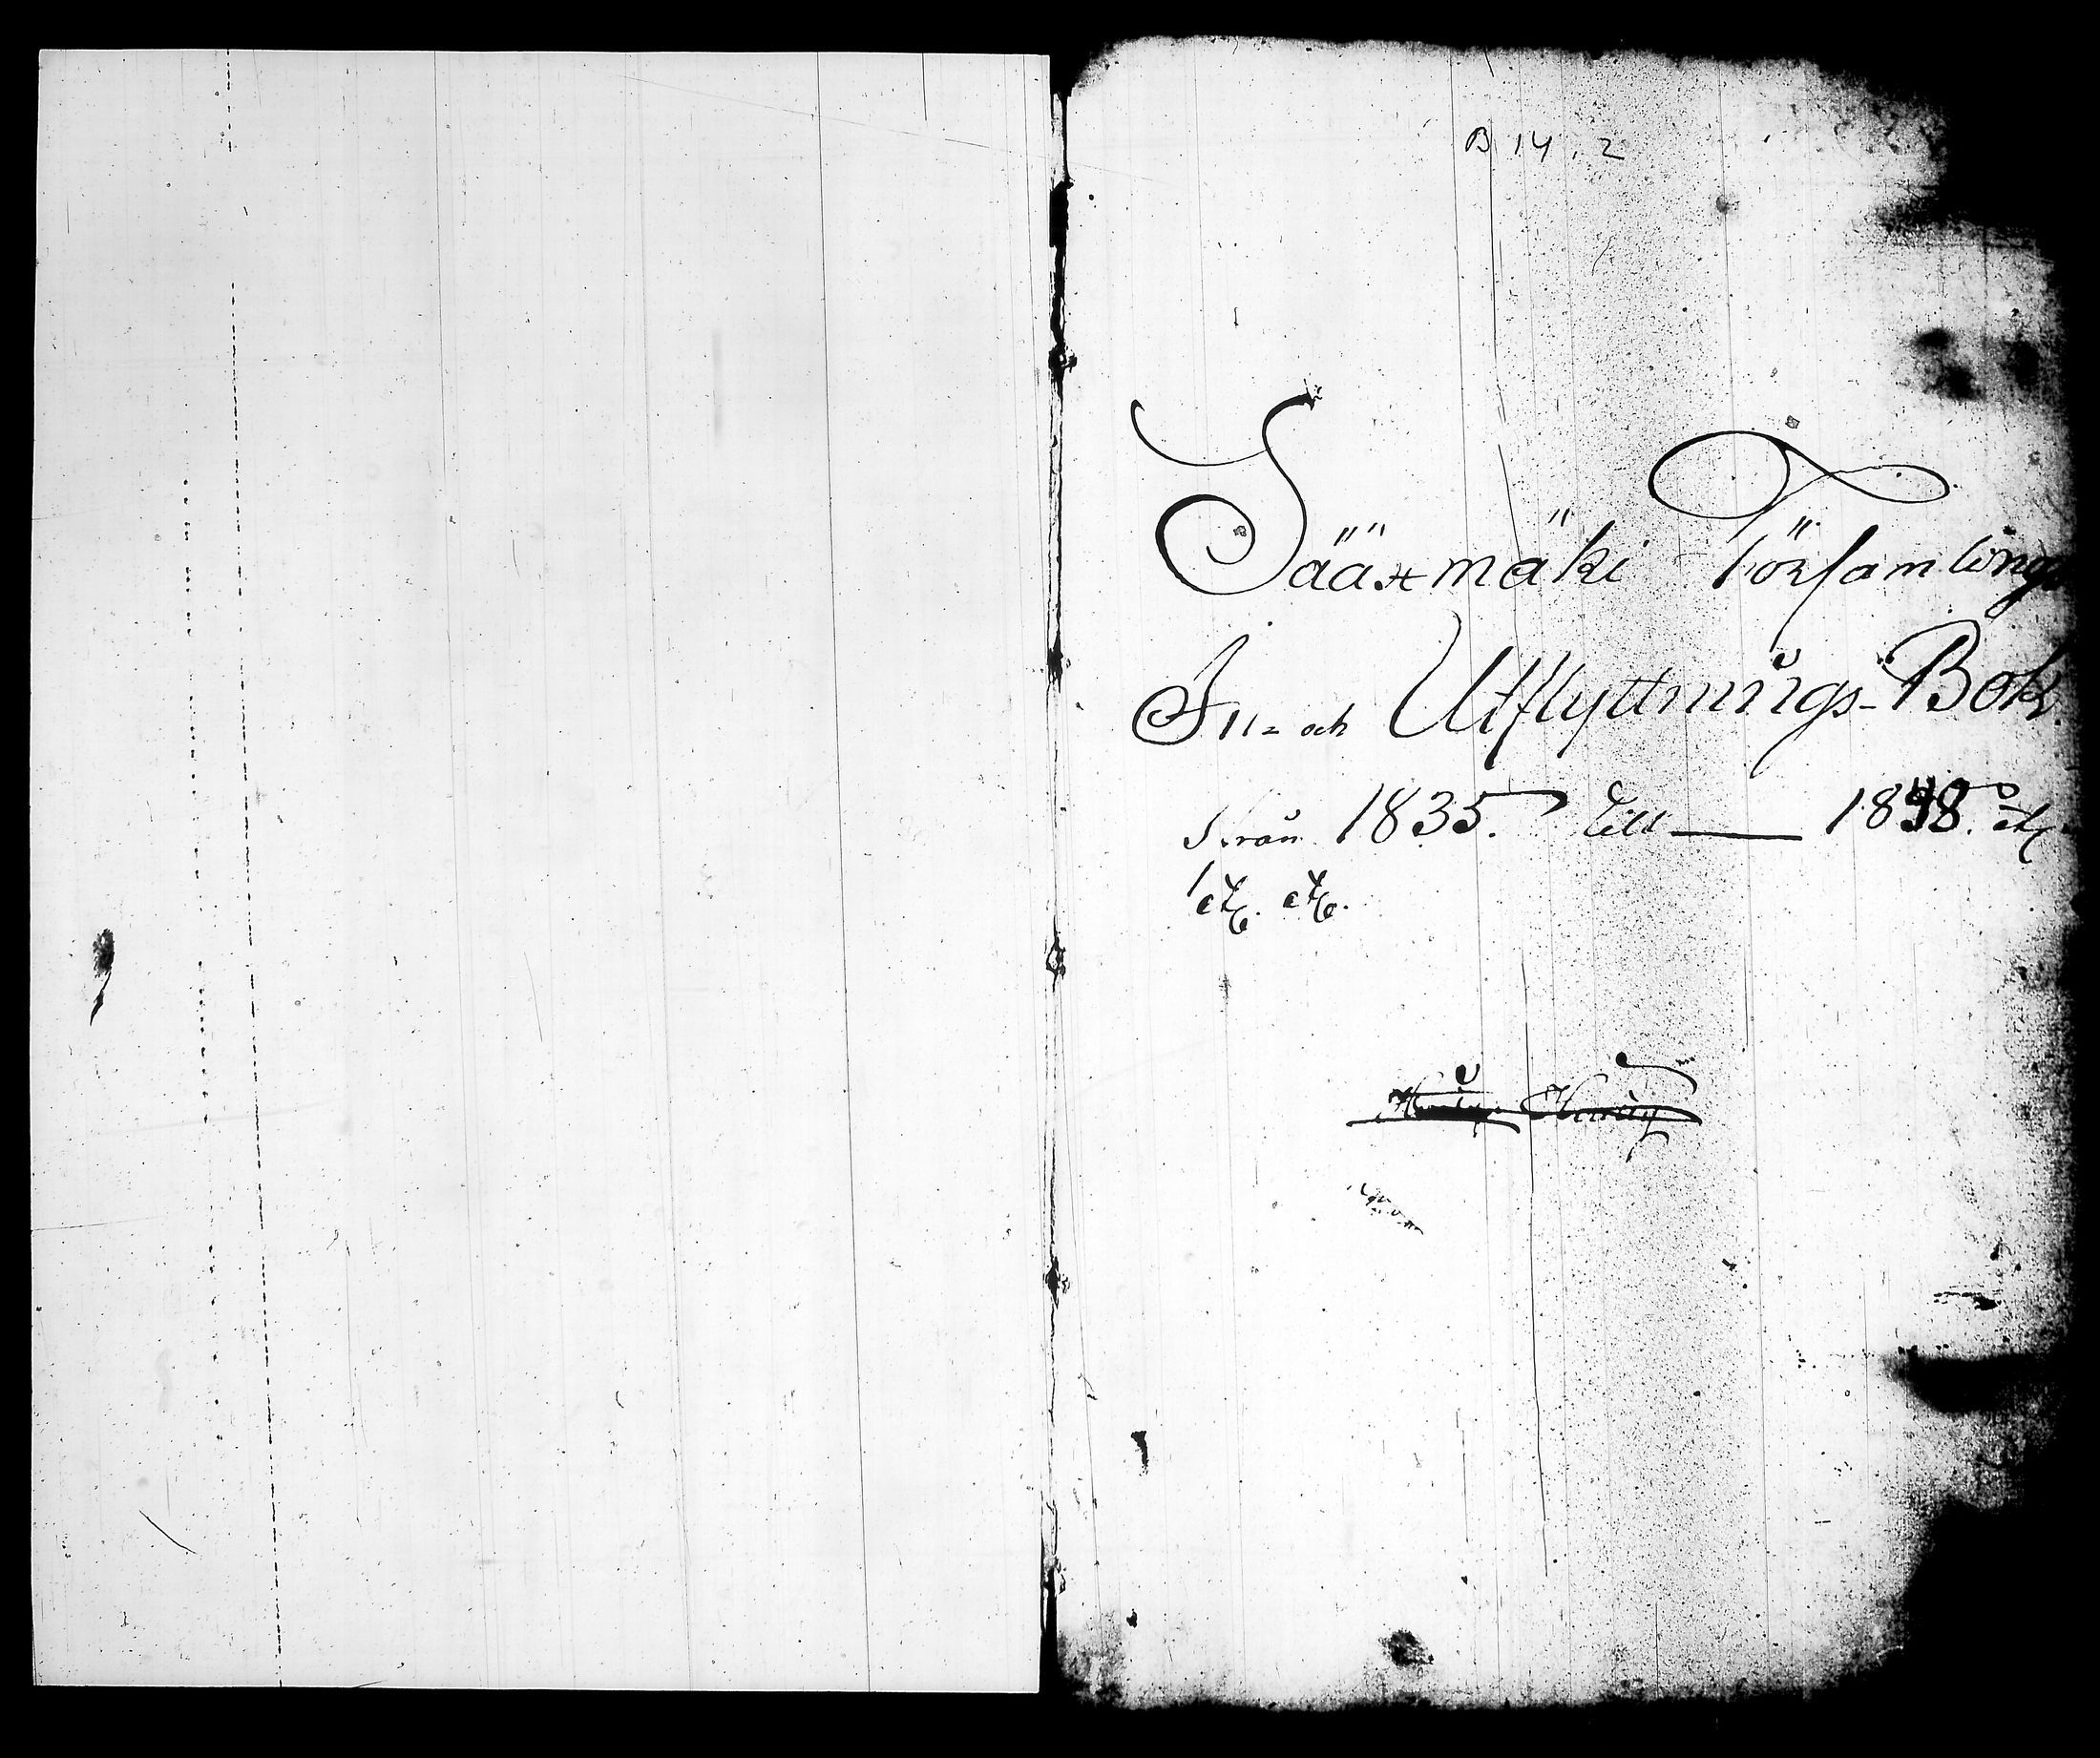 B 14. 2
Sääxmäki Församlings
In= och Utflyttnings-Bok
från 1835. till — 1848. etc
etc. etc.